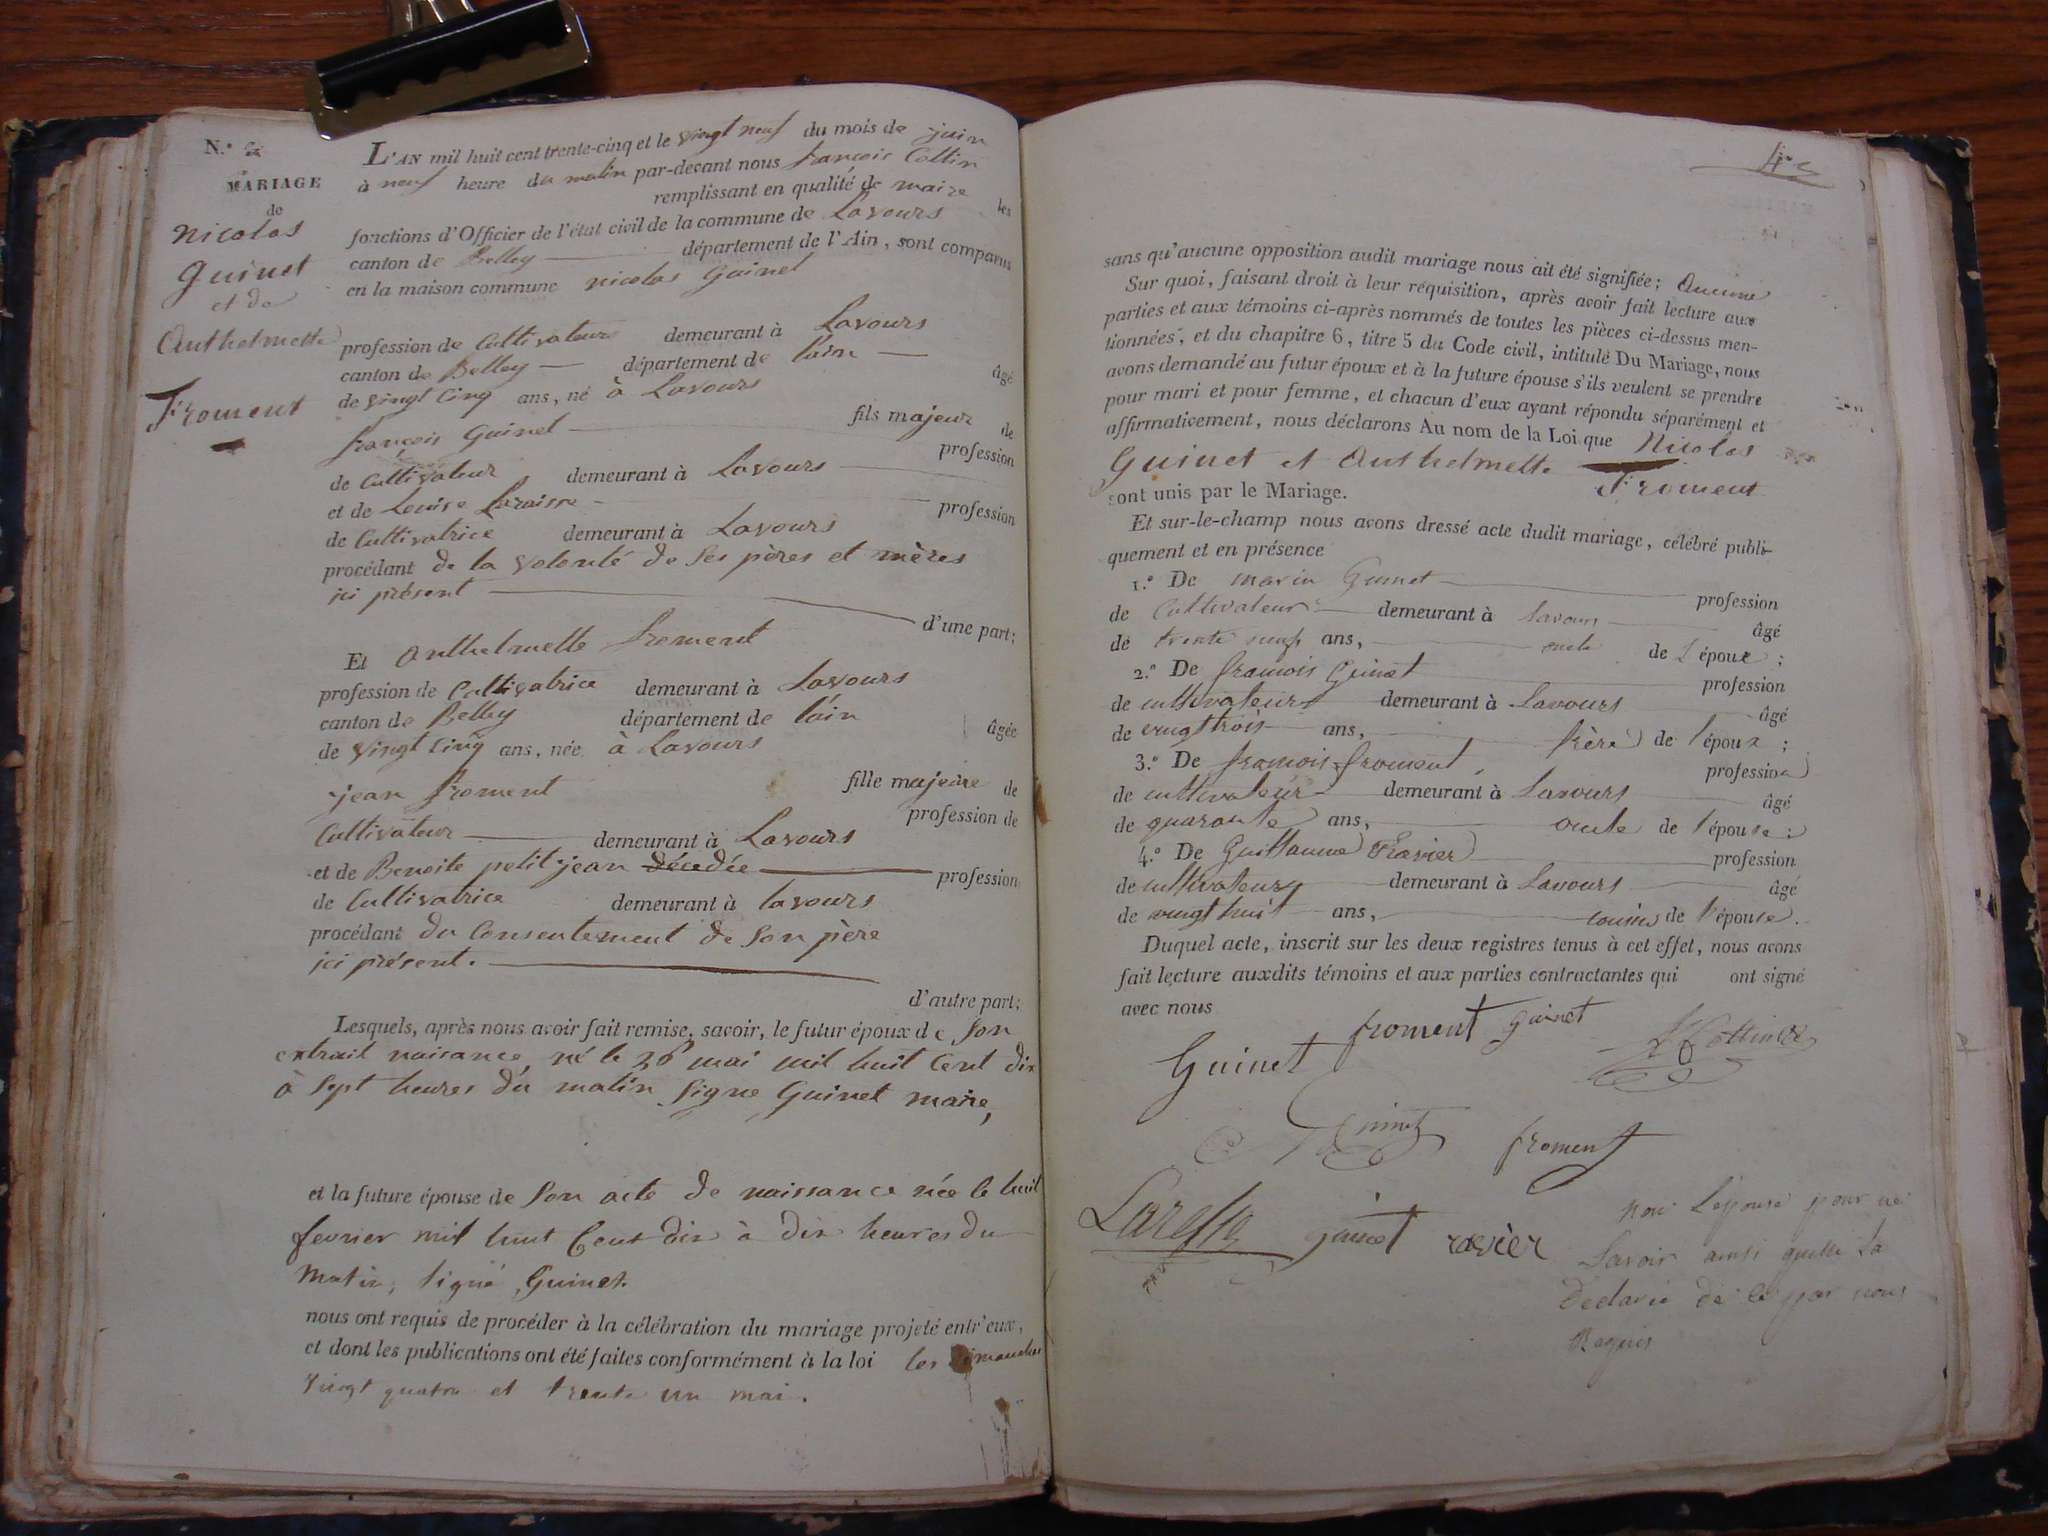 N.º 2
MARIAGE
de
Nicolas
Guinet
et de
Anthelmette
Froment
L'AN mil huit cent trente-cinq et le vingt neuf du mois de juin
à neuf heure du matin par-devant nous françois Cottin
remplissant en qualité de maire les
fonctions d'Officier de l'état civil de la commune de Lavours
canton de Belley département de l'Ain, sont comparus
en la maison commune nicolas Guinet
profession de Cultivateur demeurant à Lavours
canton de Belley département de lain
âgé
de vingt Cinq ans, né à Lavours
fils majeur de
françois Guinet
profession
de Cultivateur demeurant à Lavours
et de Louise Laraisse
profession
de Cultivatrice demeurant à Lavours
procédant de la volonté de ses pères et mères
ici présent
d'une part;
Et anthelmette froment
profession de Cultivatrice demeurant à Lavours
canton de Belley département de l'áin
âgée
de vingt Cinq ans, née à Lavours
fille majeure de
jean froment
profession de
Cultivateur demeurant à Lavours
et de Benoite petit jean décedée
profession
de Cultivatrice demeurant à lavours
procédant du Consentement de son père
ici présent.
d'autre part;
Lesquels, après nous avoir fait remise, savoir, le futur époux de son
extrait naisance, né le 28 mai mil huit Cent dix
à sept heures du matin signe Guinet maire,
et la future épouse de son acte de naissance née le huit
fevrier mil huit Cent dix à dix heures du
matin, signé, Guinet.
nous ont requis de procéder à la célébration du mariage projeté entr'eux,
et dont les publications ont été faites conformément à la loi les dimanches
vingt quatre et trente un mai.
sans qu'aucune opposition audit mariage nous ait été signifiée; Aucune
Sur quoi, faisant droit à leur réquisition, après avoir fait lecture aux
parties et aux témoins ci-après nommés de toutes les pièces ci-dessus men-
tionnées, et du chapitre 6, titre 5 du Code civil, intitulé Du Mariage, nous
avons demandé au futur époux et à la future épouse s'ils veulent se prendre
pour mari et pour femme, et chacun d'eux ayant répondu séparément et
affirmativement, nous déclarons Au nom de la Loi que Nicolas
Guinet et Anthelmette Froment
sont unis par le Mariage.
Et sur-le-champ nous avons dressé acte dudit mariage, célébré publi-
quement et en présence
1.º De marin Guinet
profession
de Cultivateur demeurant à Lavours
âgé
de trente neuf ans, oncle de l'époux;
2.º De francois Guinet
profession
de cultivateur demeurant à Lavours
âgé
de vingt trois ans, frère de l'époux;
3.º De francois froment
profession
de cultivateur demeurant à Lavours
âgé
de quarante ans, oncle de l'épouse;
4.º De Guillaume Ravier
profession
de cultivateur demeurant à Lavours
âgé
de vingt huit ans, cousin de l'épouse.
Duquel acte, inscrit sur les deux registres tenus à cet effet, nous avons
fait lecture auxdits témoins et aux parties contractantes qui ont signé
avec nous
Guinet froment Guinet Cottin
Guinet froment
guinet ravier
non L'épouse pour ne
Savoir ainsi quelle La
declarée de ce par nous
Requis